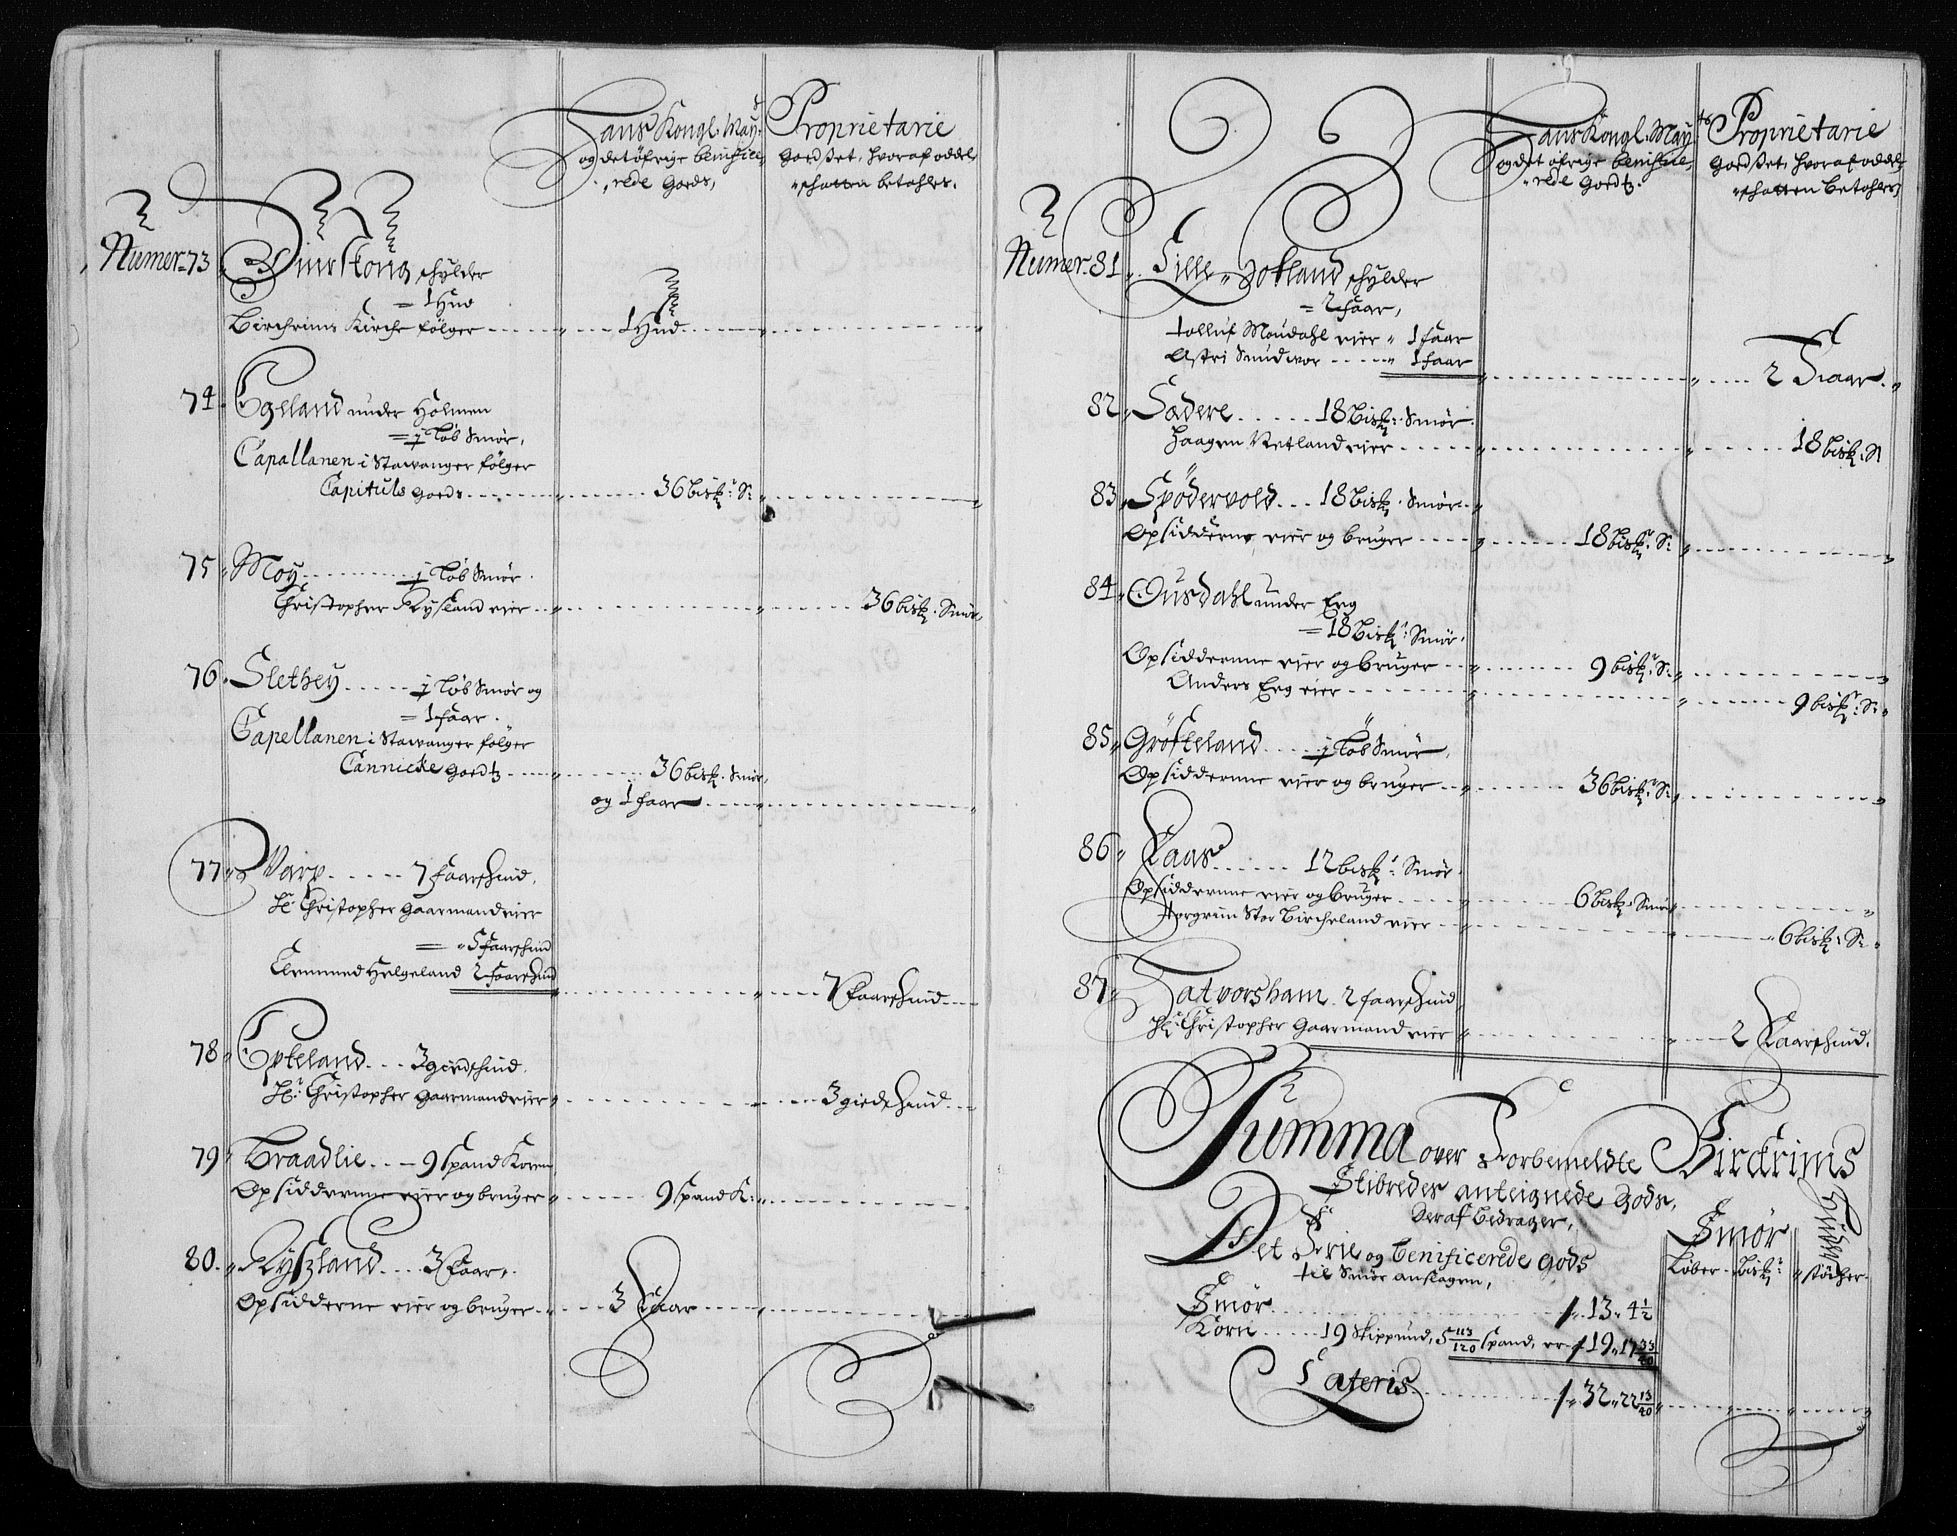 Hans Kongl. May.
og det öfrige benificerede Goeds,
Proprietarie
Goedset, hvoraf oddel
schatten betahles.
Numer 73
schylder
= 1 Hud
Birchrims Kirche fölger
1 Hud
74 Egeland under Holmen
= j Löb Smör,
Capallanen i Stavanger fölger
Capituls Goeds
36 bisk: S:
75 Moy j Löb Smör.
Christopher Rysland eier
36 bisk. Smör
76. Slethey j Löb Smör og
= 1 faar.
Capellanen i Stavanger fölger
Cannicke Goedtz
36 bisk. Smör,
og 1 faar
77 Varp 7 Faarschind.
Hr: Christopher Gaarmand eier
= 5 faarschind
Helgeland 2 faarschind
7 Faarschind
78 Epteland 3 giedschind.
Hr: Christopher Gaarmand eier
3 giedschind
79 Braadlie 9 Spand Koren
Opsidderne eier og bruger
9 Spand K:
80. Rysland 3 Faar.
Opsidderne eier og bruger
3 Faar
Hans Kongl. May.ts
og det öfrige benificerede Goedtz.
Proprietarie
Goedset, hvoraf oddel
schatten betahles
Numer 81 Lille schylder
= 2 faar,
Tolluf Moudahl eier 1 faar
Astri 1 faar
2 Faar
82 Sadere 18 Bisk: Smör
Haagen Netland eier
18 bisk: S
83 Spödervold 18 Bisk. Smör
Opsidderne, eier og bruger
18 bisk: S:
84 Ousdahl under Erg
= 18 Bisk: Smör.
Opsidderne eier og bruger
9 bisk: S:
Anders Erg eier
9 bisk: S:
85 Gröfteland j Löb Smör
Opsidderne eier og bruger
36 bisk: S:
86 Laas 12 bisk: Smör
Opsidderne eier og bruger
6 bisk. Smör
Torgrim Stor Bircheland eier
6 bisk: S:
87 Hatvorsham 2 faarschind
Hr: Christopher Gaarmand eier
2 Faarschind.
Summa over Forbemeldte Birckrims
Skibredes anteignede Gods,
deraf Bedrager,
Det Frie og benificerede Gods
til Smör anslagen,
Smör
Löber. Bisk:
Smör 1. 13. 4 1/2
Korn 19 Skippund, 5 113/120 Spand, er 1 19. 17 33/40
Lateris 1. 32. 22 13/40